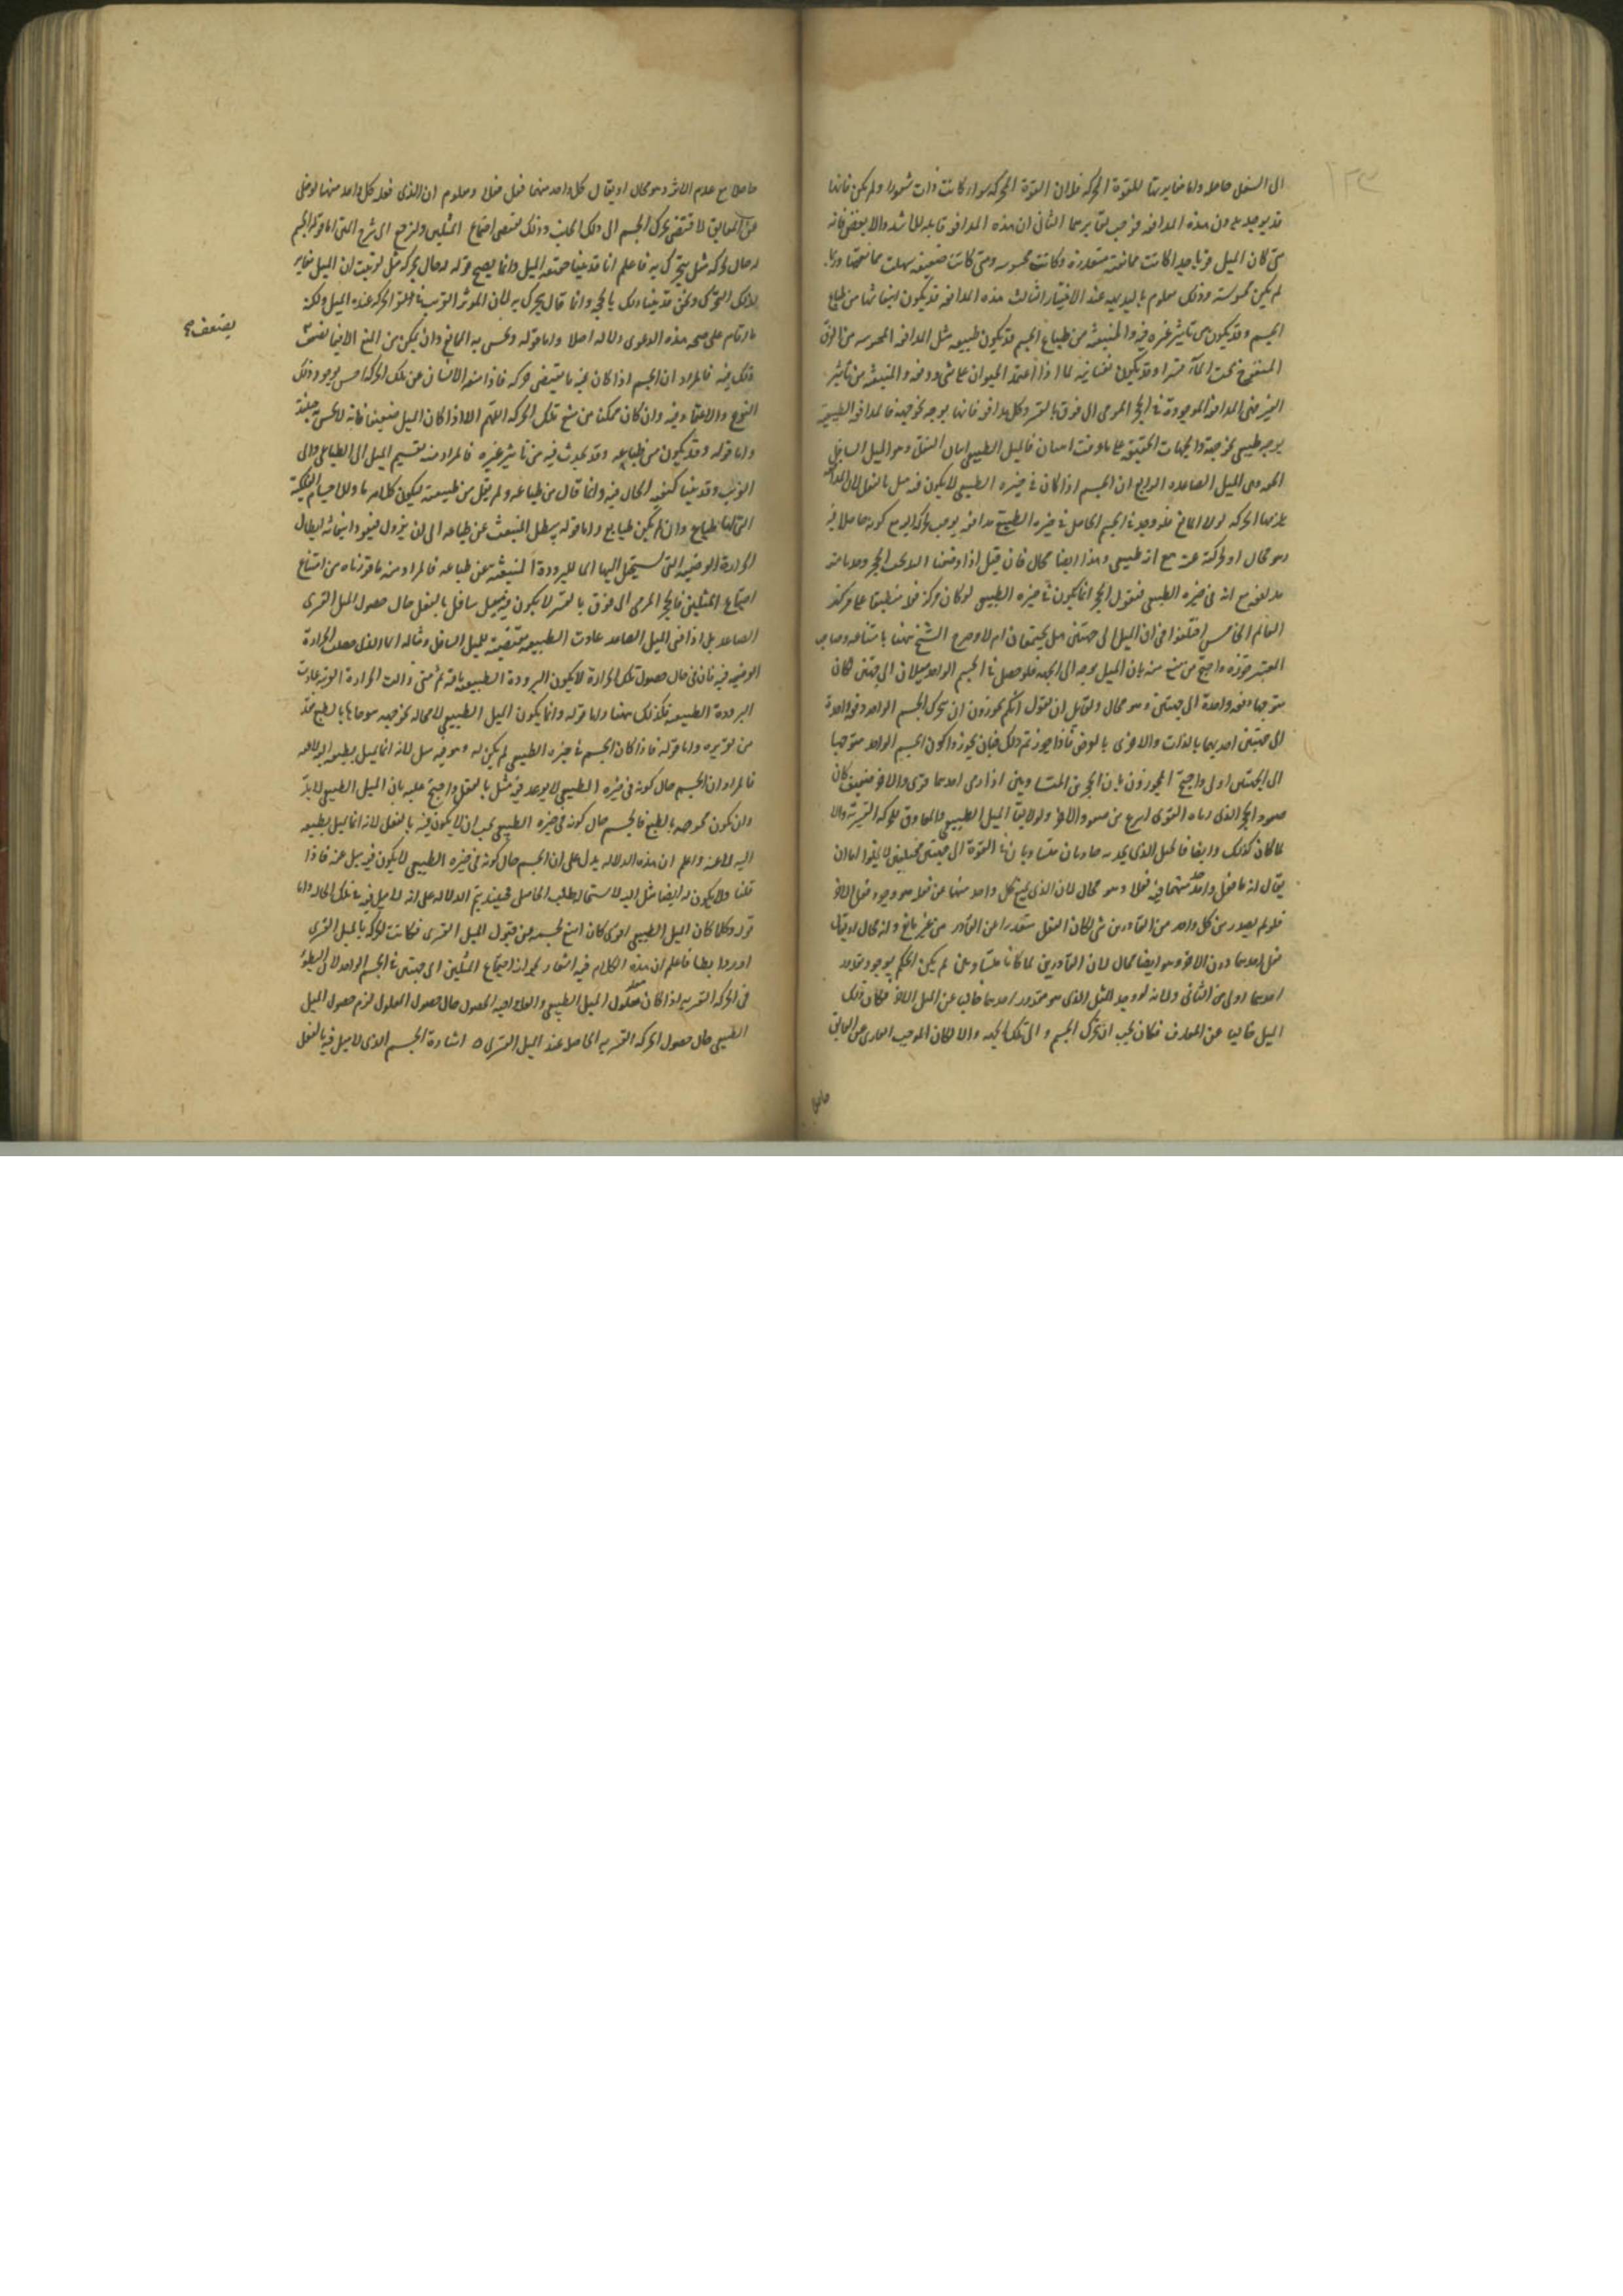 الى السفل حاصله واما مغايرتها للقوة المحركة فلان القوة المحركة سواء كانت ذات شعور او لم يكن فانها
قد يوجد بدون هذه المدافعة فوجب تغايرهما الثانى ان هذه المدافعة قابلة للاشد والانقص فانه
متى كان الميل قويا جدا كانت ممانعته متعذرة وكانت محسوسة ومتى كانت ضعيفة سهلت ممانعتها وربما
لم يكن محسوسة وذلك معلوم بالبديهة عند الاختبار الثالث هذه المدافعة قد يكون انبعاثها من طباع
الجسم وقد يكون من تاثير غيره فيه والمنبعثة من طباع الجسم قد يكون طبيعية مثل المدافعة المحسوسة من الزق
المنفوخ تحت الماء قسرا وقد يكون نفسانية كما اذا اعتمد الحيوان على شئ ودفعه والمنبعثة من تاثير
الغير فمثل المدافعة الموجودة فى الحجر المرمى الى فوق بالقسر وكل مدافعة فانها يوجد نحو جهة فالمدافعة الطبيعية
يوجد طبيعى نحو جهة والجهات الحقيقية على ما عرفت اثنتان فالميل الطبيعى اما الى السفل وهو الميل السافل
الجسم وهى الميل الصاعد الرابع ان الجسم اذا كان فى حيزه الطبيعى لا يكون فيه ميل بالفعل لان المدافعة
يلزمها الحركة لولا المانع فلو وجد فى الجسم الحاصل فى حيزه الطبيعى مدافعة يوجب الحركة اليه مع كونه حاصلا فيه
وهو محال او الحركة عنه مع انه طبيعى وهذا ايضا محال فان قيل اذا وضعنا اليد تحت الحجر وجدناه
مدافعا مع انه فى حيزه الطبيعى فنقول الحجر انما يكون فى حيزه الطبيعى لو كان مركزه منطبقا على مركز
العالم الخامس اختلفوا فى ان الميل الى جهتين هل يجتمعان ام لا وصرح الشيخ ههنا بامتناعه وصاحب
المعتبر جوزه واحتج من منع منه بان الميل يوجه الى الجهة فلو حصل فى الجسم الواحد ميلان الى جهتين لكان
متوجها دفعة واحدة الى جهتين وهو محال ولقائل ان يقول انكم تجوزون ان يتحرك الجسم الواحد دفعة واحدة
الى جهتين احديهما بالذات والاخرى بالعرض فاذا جوزتم ذلك فبان يجوز واكون الجسم الواحد متوجها
الى الجهتين اولى واحتج المجوزون بان الحجرين المتساويين اذا رمى احدهما قوى والاخر ضعيف كان
صعود الحجر الذى رماه القوى اسرع من صعود الاخر ولولا بقاء الميل الطبيعى المعاوق للحركة القسرية والا
لما كان كذلك وايضا فالحبل الذى يجذبه جاذبان متساويان فى القوة الى جهتين مختلفتين لا يخلوا اما ان
يقال انه ما فعل واحد منهما فيه فعلا وهو محال لان الذى يمنع كل واحد منهما عن فعله هو وجود فعل الاخر
فلو لم يصدر من كل واحد من القادرين شئ لكان الفعل متعذرا من القادر من غير مانع وانه محال او يقال
فعل احدهما دون الاخر وهو ايضا محال لان القادرين لما كانا متساويين لم يكن الحكم بوجود مقدور
احدهما اولى من الثانى ولانه لو وجد الميل الذى هو مقدور احدهما خاليا عن الميل الاخر لكان ذلك
الميل خاليا عن المعاوق فكان يجب ان يتحرك الجسم الى تلك الجهة والا لكان الموجب العارى عن العايق
حاصلا
حاصلا مع عدم الاثر وهو محال او يقال كل واحد منهما فعل فعلا ومعلوم ان الذى فعله كل واحد منهما لو خلى
عن العايق لاقتضى تحرك الجسم الى ذلك الجانب وذلك يقتضى اجتماع الميلين ولنرجع الى شرح المتن اما قوله الجسم
له حال الحركة ميل يتحرك به فاعلم انا قد بينا حقيقة الميل وانما يصح قوله له حال تحركه ميل لو ثبت ان الميل مغاير
لذلك التحرك ونحن قد بينا ذلك بالحجة وانما قال يتحرك به لان الموثر القريب فى الحركة عنده الميل ولكنه
ما اقام على صحة هذه الدعوى دلالة اصلا واما قوله ويحس به الممانع وان لم يتمكن من المنع الا فيما يضعف
يضعف صح
ذلك فيه فالمراد ان الجسم اذا كان فيه ما يقتضى حركة فاذا منعه الانسان عن تلك الحركة احس بوجود ذلك
النزوع والاعتماد فيه وان كان ممكنا من منع تلك الحركة اللهم الا اذا كان الميل ضعيفا فانه لا يحس به حينئذ
واما قوله وقد يكون من طباعه وقد يحدث فيه من تاثير غيره فالمراد منه تقسيم الميل الى الطباعى والى
الغريب وقد بينا كيفية الحال فيه وانما قال من طباعه ولم يقل من طبيعته ليكون كلامه متناولا للاجسام الفلكية
التى لها طباع وان لم يكن طبايع واما قوله يبطل المنبعث عن طباعه الى ان يزول فيعود انبعاثه ابطال
الحرارة العرضية التى يستحيل اليها الماء للبرودة المنبعثة عن طباعه فالمراد منه ما قررناه من امتناع
اجتماع الميلين فالحجر المرمى الى فوق بالقسر لا يكون فيه ميل سافل بالفعل حال حصول الميل القسرى
الصاعد بل اذا فنى الميل الصاعد عادت الطبيعة مقتضية للميل السافل ومثاله الماء الذى حصلت الحرارة
العرضية فيه فان فى حال حصول تلك الحرارة لا يكون البرودة الطبيعية باقية ثم متى زالت الحرارة العرضية عادت
البرودة الطبيعية فكذلك ههنا واما قوله وانما يكون الميل الطبيعى لا محالة نحو جهة يتوخاها بالطبع فقد
مر تقريره واما قوله فاذا كان الجسم فى حيزه الطبيعى لم يكن له وهو فيه ميل لانه انما يميل بطبعه اليه لا عنه
فالمراد ان الجسم حال كونه فى حيزه الطبيعى لا يوجد فيه ميل بالفعل واحتج عليه بان الميل الطبيعى لا بد
وان يكون نحو جهة بالطبع فالجسم حال كونه فى حيزه الطبيعى يجب ان لا يكون فيه بالفعل لانه انما يميل بطبعه
اليه لا عنه واعلم ان هذه الدلالة يدل على ان الجسم حال كونه فى حيزه الطبيعى لا يكون فيه ميل عنه فاذا
قلنا ولا يكون له ايضا ميل اليه لاستحالة طلب الحاصل فحينئذ يتم الدلالة على انه لا ميل فيه فى تلك الحالة واما
قوله وكلما كان الميل الطبيعى اقوى كان امنع لجسمه عن قبول الميل القسرى فكانت الحركة بالميل القسرى
افتر وابطا فاعلم ان هذه الكلام فيه اشعار بجواز اجتماع الميلين الى جهتين فى الجسم الواحد لان البطؤ
فى الحركة القسرية اذا كان معلول الميل الطبيعى والعلة واجبة الحصول حال حصول المعلول لزم حصول الميل
الطبيعى حال حصول الحركة القسرية الحاصلة عند الميل القسرى ه اشارة الجسم الذى لا ميل فيه بالفعل